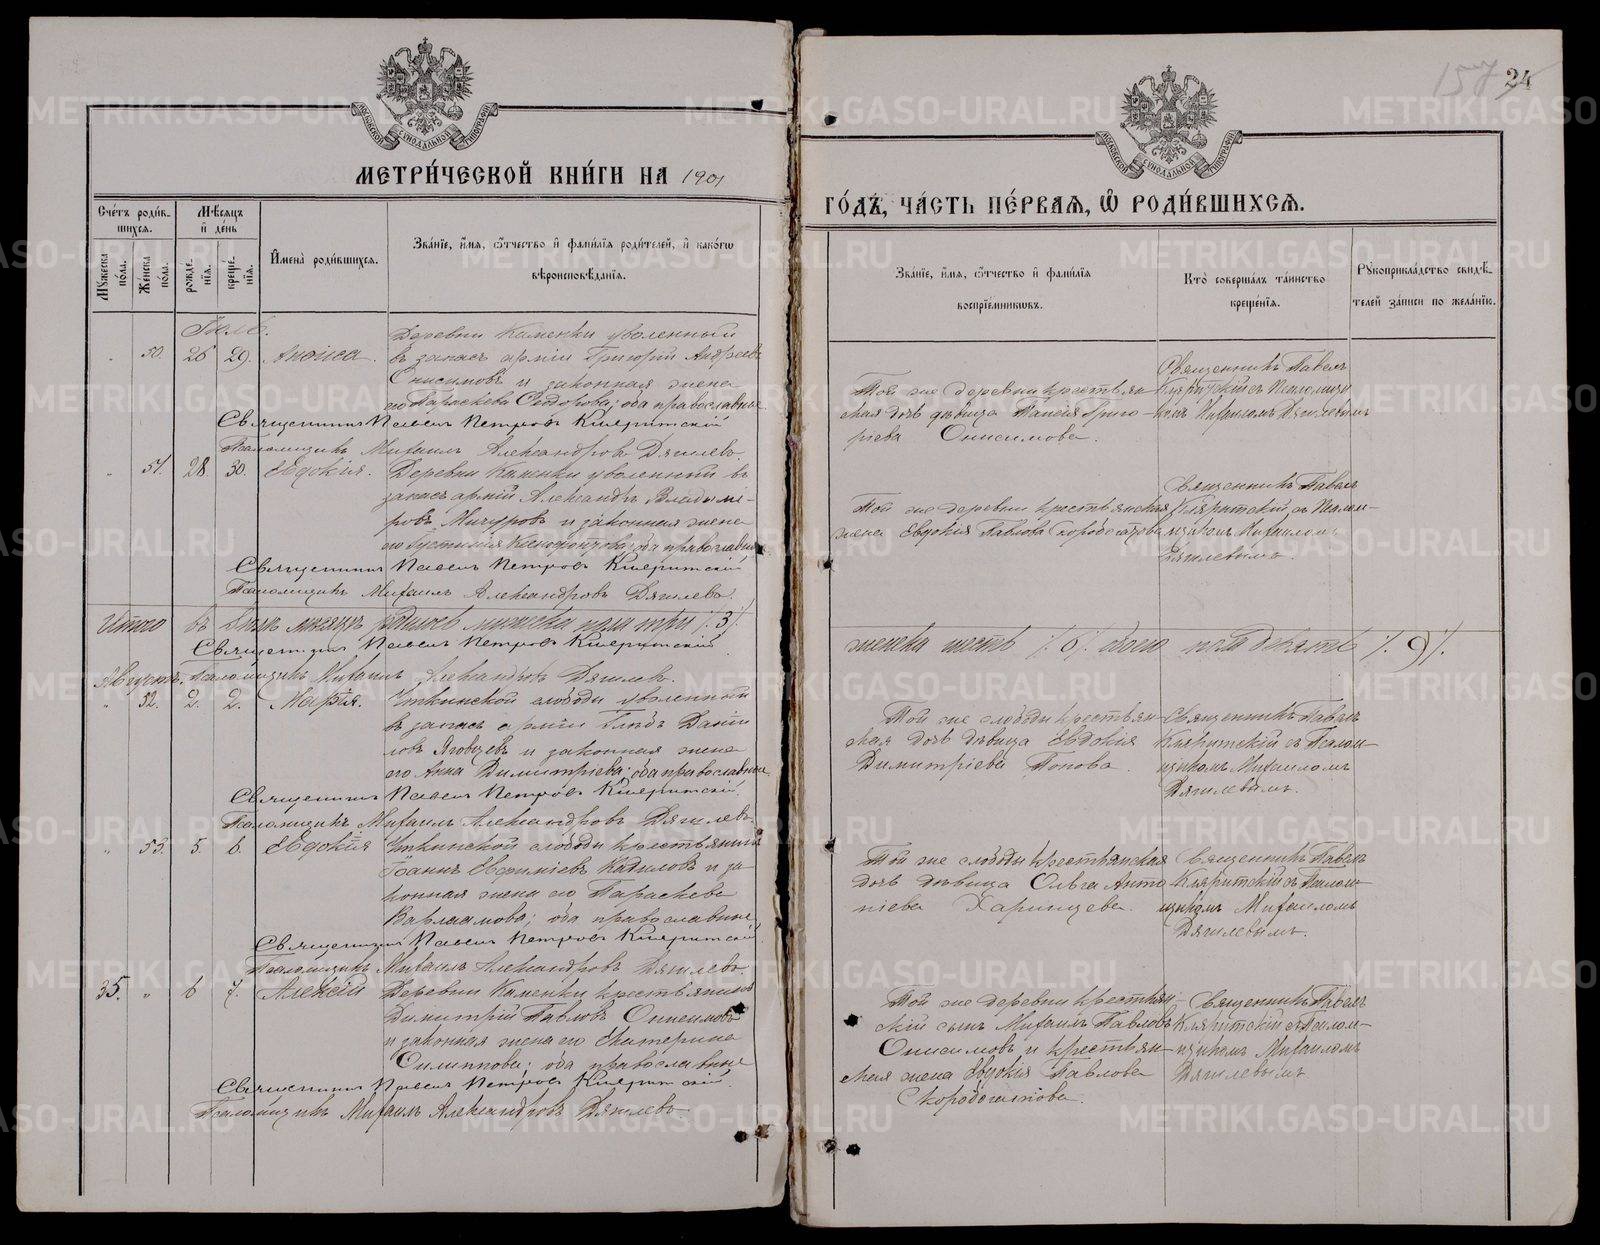 157
24
МЕТРИ́ЧЕСКОЙ КНИ́ГИ НА 1901
ГО́ДЪ, ЧА́СТЬ ПЕ́РВАѦ, Ѽ РОДИ́ВШИХСѦ.
Сче́тъ роди́вшихсѧ.
Мꙋжеска по́ла.
Же́нска по́ла.
Мѣ́сѧцъ и́ де́нь
рожде́нїѧ.
креще́нїѧ.
И҆мена̀ роди́вшихсѧ.
Зва́нїе, и҆́мѧ, ѻ҆́тчество и҆ фами́лїѧ роди́телей, и҆ како́гѡ
вѣроисповѣ́данїѧ.
Зва́нїе, и҆́мѧ, ѻ҆́тчество и҆ фами́лїѧ
воспрїе́мникѡвъ.
Кто̀ соверша́лъ та́инство
креще́нїѧ.
Рꙋкоприкла́дство свидѣ́-
телей за́писи по жела́нїю.
Іюль.
50. 26 29. Анѳиса.
Деревни Каменки уволенный
въ запасъ арміи Григорій Андреевъ
Онисимовъ и законная жена
его Параскева Сидорова; оба православные.
Той же деревни крестьян-
ская дочь дѣвица Таисія Григо-
ріева Онисимова.
Священникъ Павелъ
Кляритскій съ Псаломщи-
комъ Михаиломъ Дягилевымъ
Священникъ Павелъ Петровъ Кляритскій
Псаломщикъ Михаилъ Александровъ Дягилевъ.
51. 28 30. Евдокія.
Деревни Каменки уволенный въ
запасъ арміи Александръ Владимі-
ровъ Мичуровъ и законная жена
его Іустинія Ксенофонтова; оба православные
Той же деревни крестьянская
жена Евдокія Павлова Скоробогатова
Священникъ Павелъ
Кляритскій съ Псалом-
щикомъ Михаиломъ
Дягилевымъ.
Священникъ Павелъ Петровъ Кляритскій
Псаломщикъ Михаилъ Александровъ Дягилевъ.
Итого въ Іюлѣ мѣсяцѣ родилось мужеска пола три /3/
женска шесть /6/ обоего пола девять /9/.
Священникъ Павелъ Петровъ Кляритскій
Августъ. Псаломщикъ Михаилъ Александровъ Дягилевъ.
52. 2. 2. Марія.
Уткинской слободы уволенный
въ запасъ арміи Глѣбъ Дани-
ловъ Яговцевъ и законная жена
его Анна Димитріева; оба православные
Той же слободы крестьян-
ская дочь дѣвица Евдокія
Димитріева Попова.
Священникъ Павелъ
Кляритскій съ Псалом-
щикомъ Михаиломъ
Дягилевымъ.
Священникъ Павелъ Петровъ Кляритскій.
Псаломщикъ Михаилъ Александровъ Дягилевъ.
53. 5. 6. Евдокія
Уткинской слободы крестьянинъ
Іоаннъ Евфиміевъ Кадиловъ и за-
конная жена его Параскева
Варлаамова; оба православные.
Той же слободы крестьянская
дочь дѣвица Ольга Анто-
ніева Харинцева.
Священникъ Павелъ
Кляритскій съ Псалом-
щикомъ Михаиломъ
Дягилевымъ.
Священникъ Павелъ Петровъ Кляритскій
Псаломщикъ Михаилъ Александровъ Дягилевъ.
35. 6 7. Алексій
Деревни Каменки крестьянинъ
Димитрій Павловъ Онисимовъ
и законная жена его Екатерина
Филиппова; оба православные
Той же деревни крестьян-
скій сынъ Михаилъ Павловъ
Онисимовъ и крестьян-
ская жена Евдокія Павлова
Скоробогатова.
Священникъ Павелъ
Кляритскій съ Псалом-
щикомъ Михаиломъ
Дягилевымъ
Священникъ Павелъ Петровъ Кляритскій.
Псаломщикъ Михаилъ Александровъ Дягилевъ
METRIKI.GASO-URAL.RU